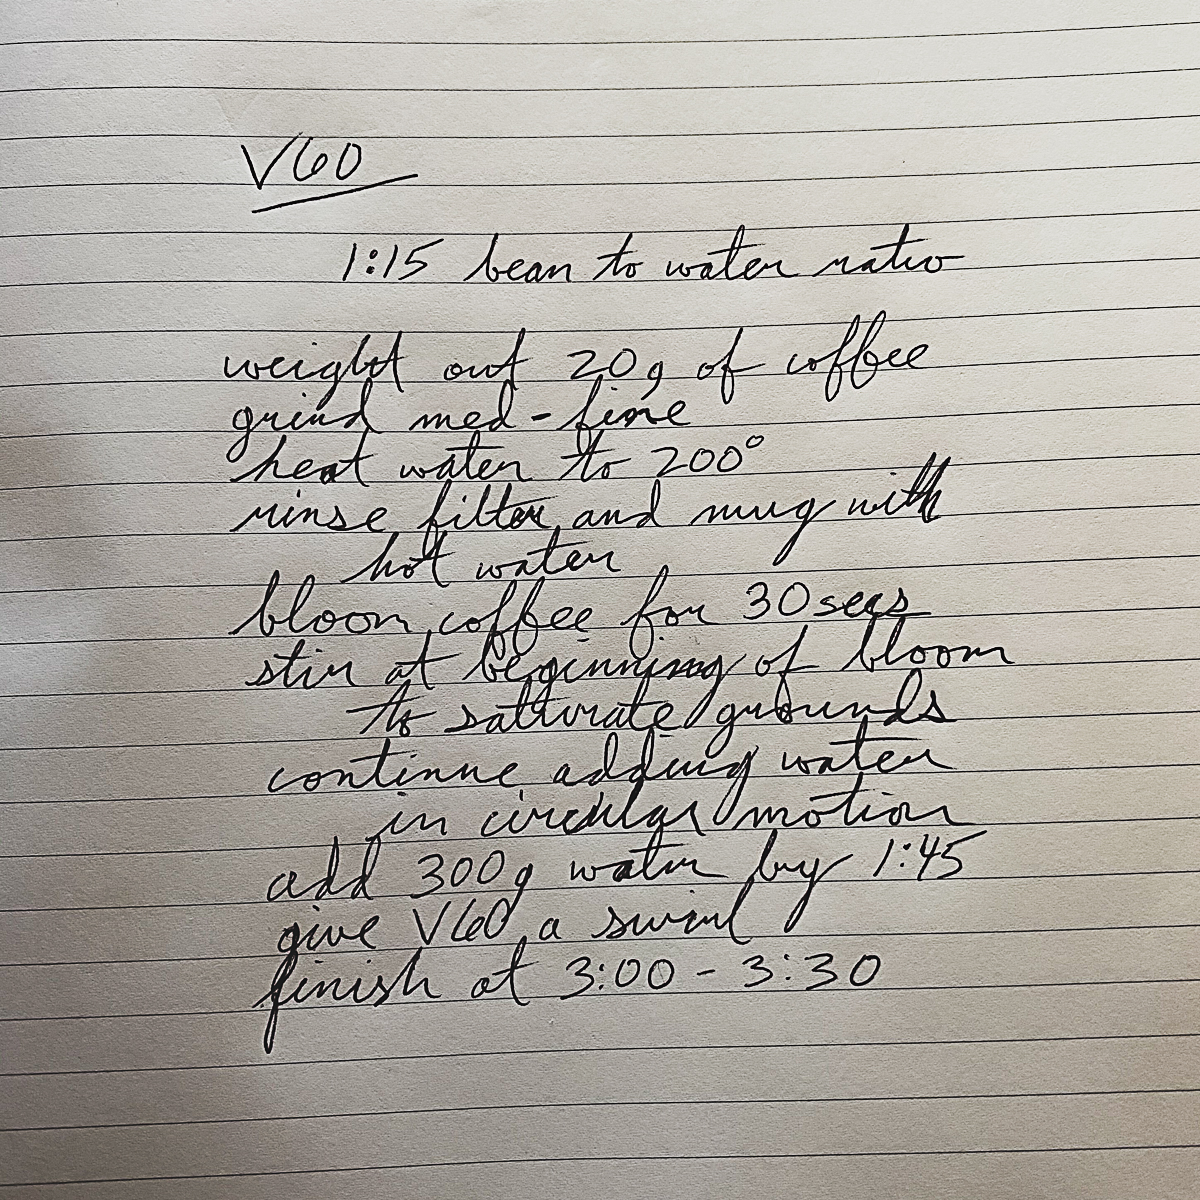 V60
1:15 bean to water ratio
weight out 20g of coffee
grind med-fine
heat water to 200°
rinse filter and mug with
hot water
bloom coffee for 30 secs
stir at beginning of bloom
to satturate grounds
continue adding water
in circular motion
add 300g water by 1:45
give V60 a swirl
finish at 3:00 - 3:30